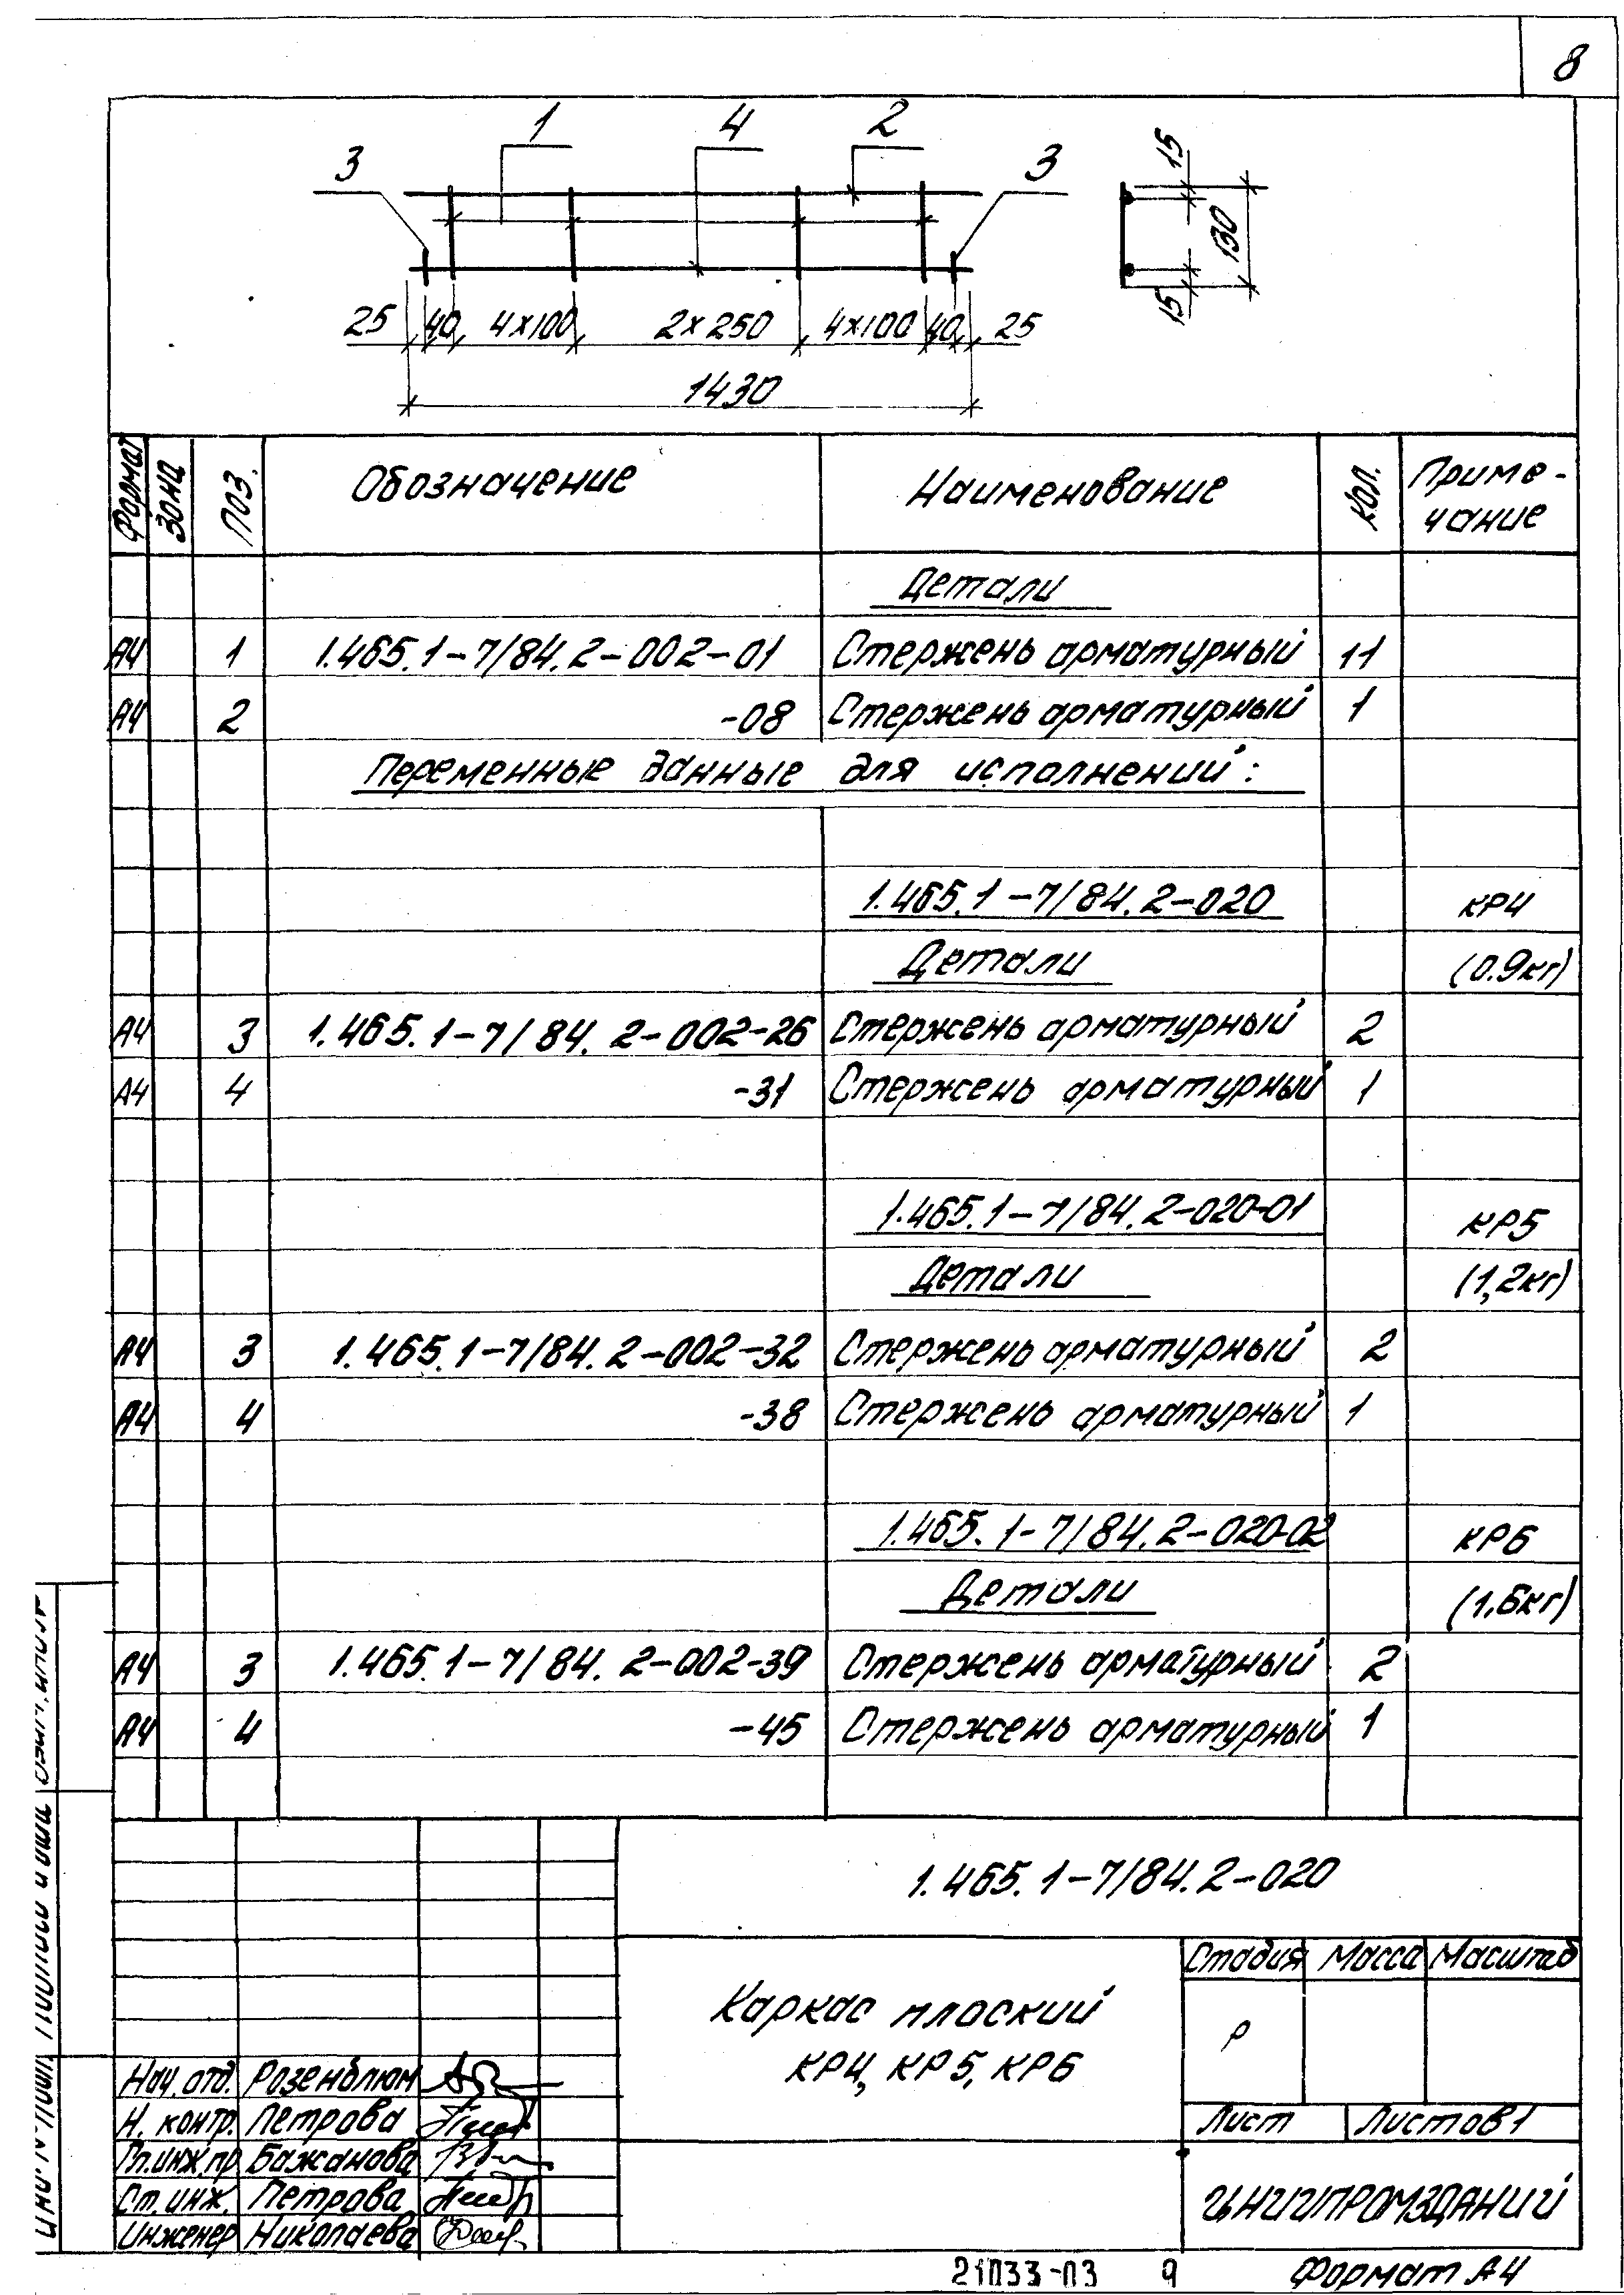 8
1 4 2
3 3
15
130
15
25 40 4×100 2×250 4×100 40 25
1430
Формат Зона Поз. Обозначение Наименование Кол. Приме-
чание
Детали
А4 1 1.465.1-7/84.2-002-01 Стержень арматурный 11
А4 2 -08 Стержень арматурный 1
Переменные данные для исполнений:
1.465.1-7/84.2-020 КР4
Детали (0.9кг)
А4 3 1.465.1-7/84.2-002-26 Стержень арматурный 2
А4 4 -31 Стержень арматурный 1
1.465.1-7/84.2-020-01 КР5
Детали (1,2кг)
А4 3 1.465.1-7/84.2-002-32 Стержень арматурный 2
А4 4 -38 Стержень арматурный 1
1.465.1-7/84.2-020-02 КР6
Детали (1.6кг)
А4 3 1.465.1-7/84.2-002-39 Стержень арматурный 2
А4 4 -45 Стержень арматурный 1
1.465.1-7/84.2-020
Каркас плоский
КР4, КР5, КР6
Стадия Масса Масштаб
Р
Лист Листов 1
ЦНИИПРОМЗДАНИЙ
Нач. отд. Розенблюм
Н. контр. Петрова
Гл.инж.пр Бажанова
Ст. инж. Петрова
Инженер Николаева
21033-03 9 Формат А4